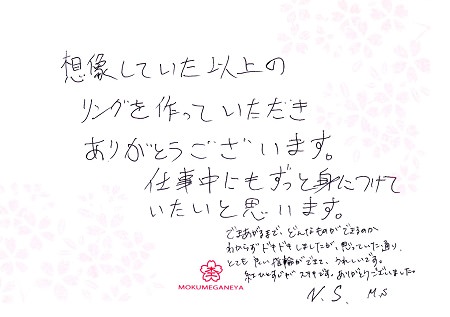 想像していた以上の
リングを作っていただき
ありがとうございます。
仕事中にもずっと身につけて
いたいと思います。
できあがるまで、どんなものができるのか
わからずドキドキしましたが、思っていた通り、
とても良い指輪ができて、うれしいです。
紅ひとすじがステキです。ありがとうございました。
N.S. M.S
MOKUMEGANEYA